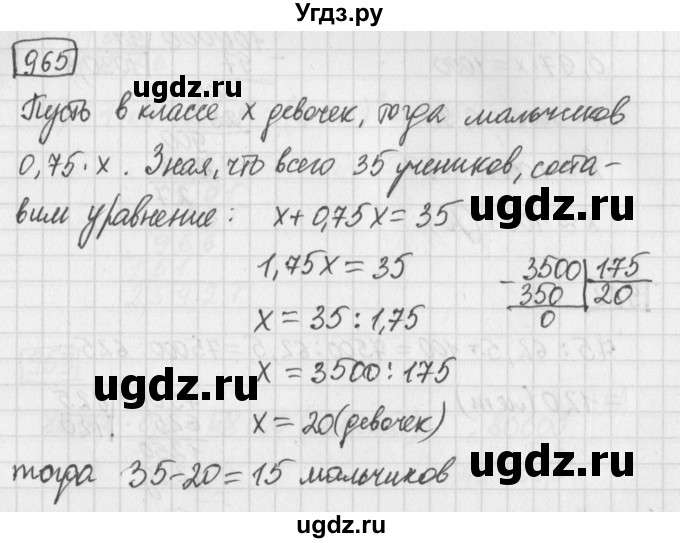 Угдз.ру
965
ugdz.ru
Пусть в классе x девочек, тогда мальчиков
0,75·x. Зная, что всего 35 учеников, соста-
вим уравнение: x+0,75x=35
ugdz.ru
1,75x=35
- 3500 175
350 20
0
x=35:1,75
x=3500:175
ugdz.ru
x=20(девочек)
тогда 35-20=15 мальчиков
ugdz.ru
ugdz.ru